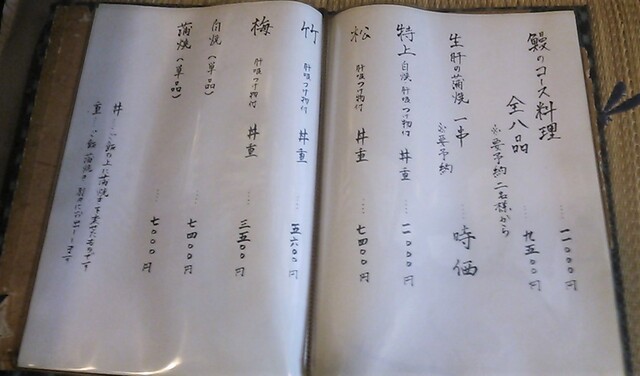 鰻のコース料理
全八品
※要予約 二名様から
一一〇〇〇円
九五〇〇円
生肝の蒲焼 一串
※要予約
時価
特上 白焼 肝吸 つけ物付 丼 重
松 肝吸 つけ物付 丼 重 七四〇〇円
竹 肝吸 つけ物付 丼 重 五六〇〇円
梅 肝吸 つけ物付 丼 重 三五〇〇円
白焼(単品) 七四〇〇円
蒲焼(単品) 七〇〇〇円
丼 ご飯の上に蒲焼きを
重 ご飯、蒲焼き